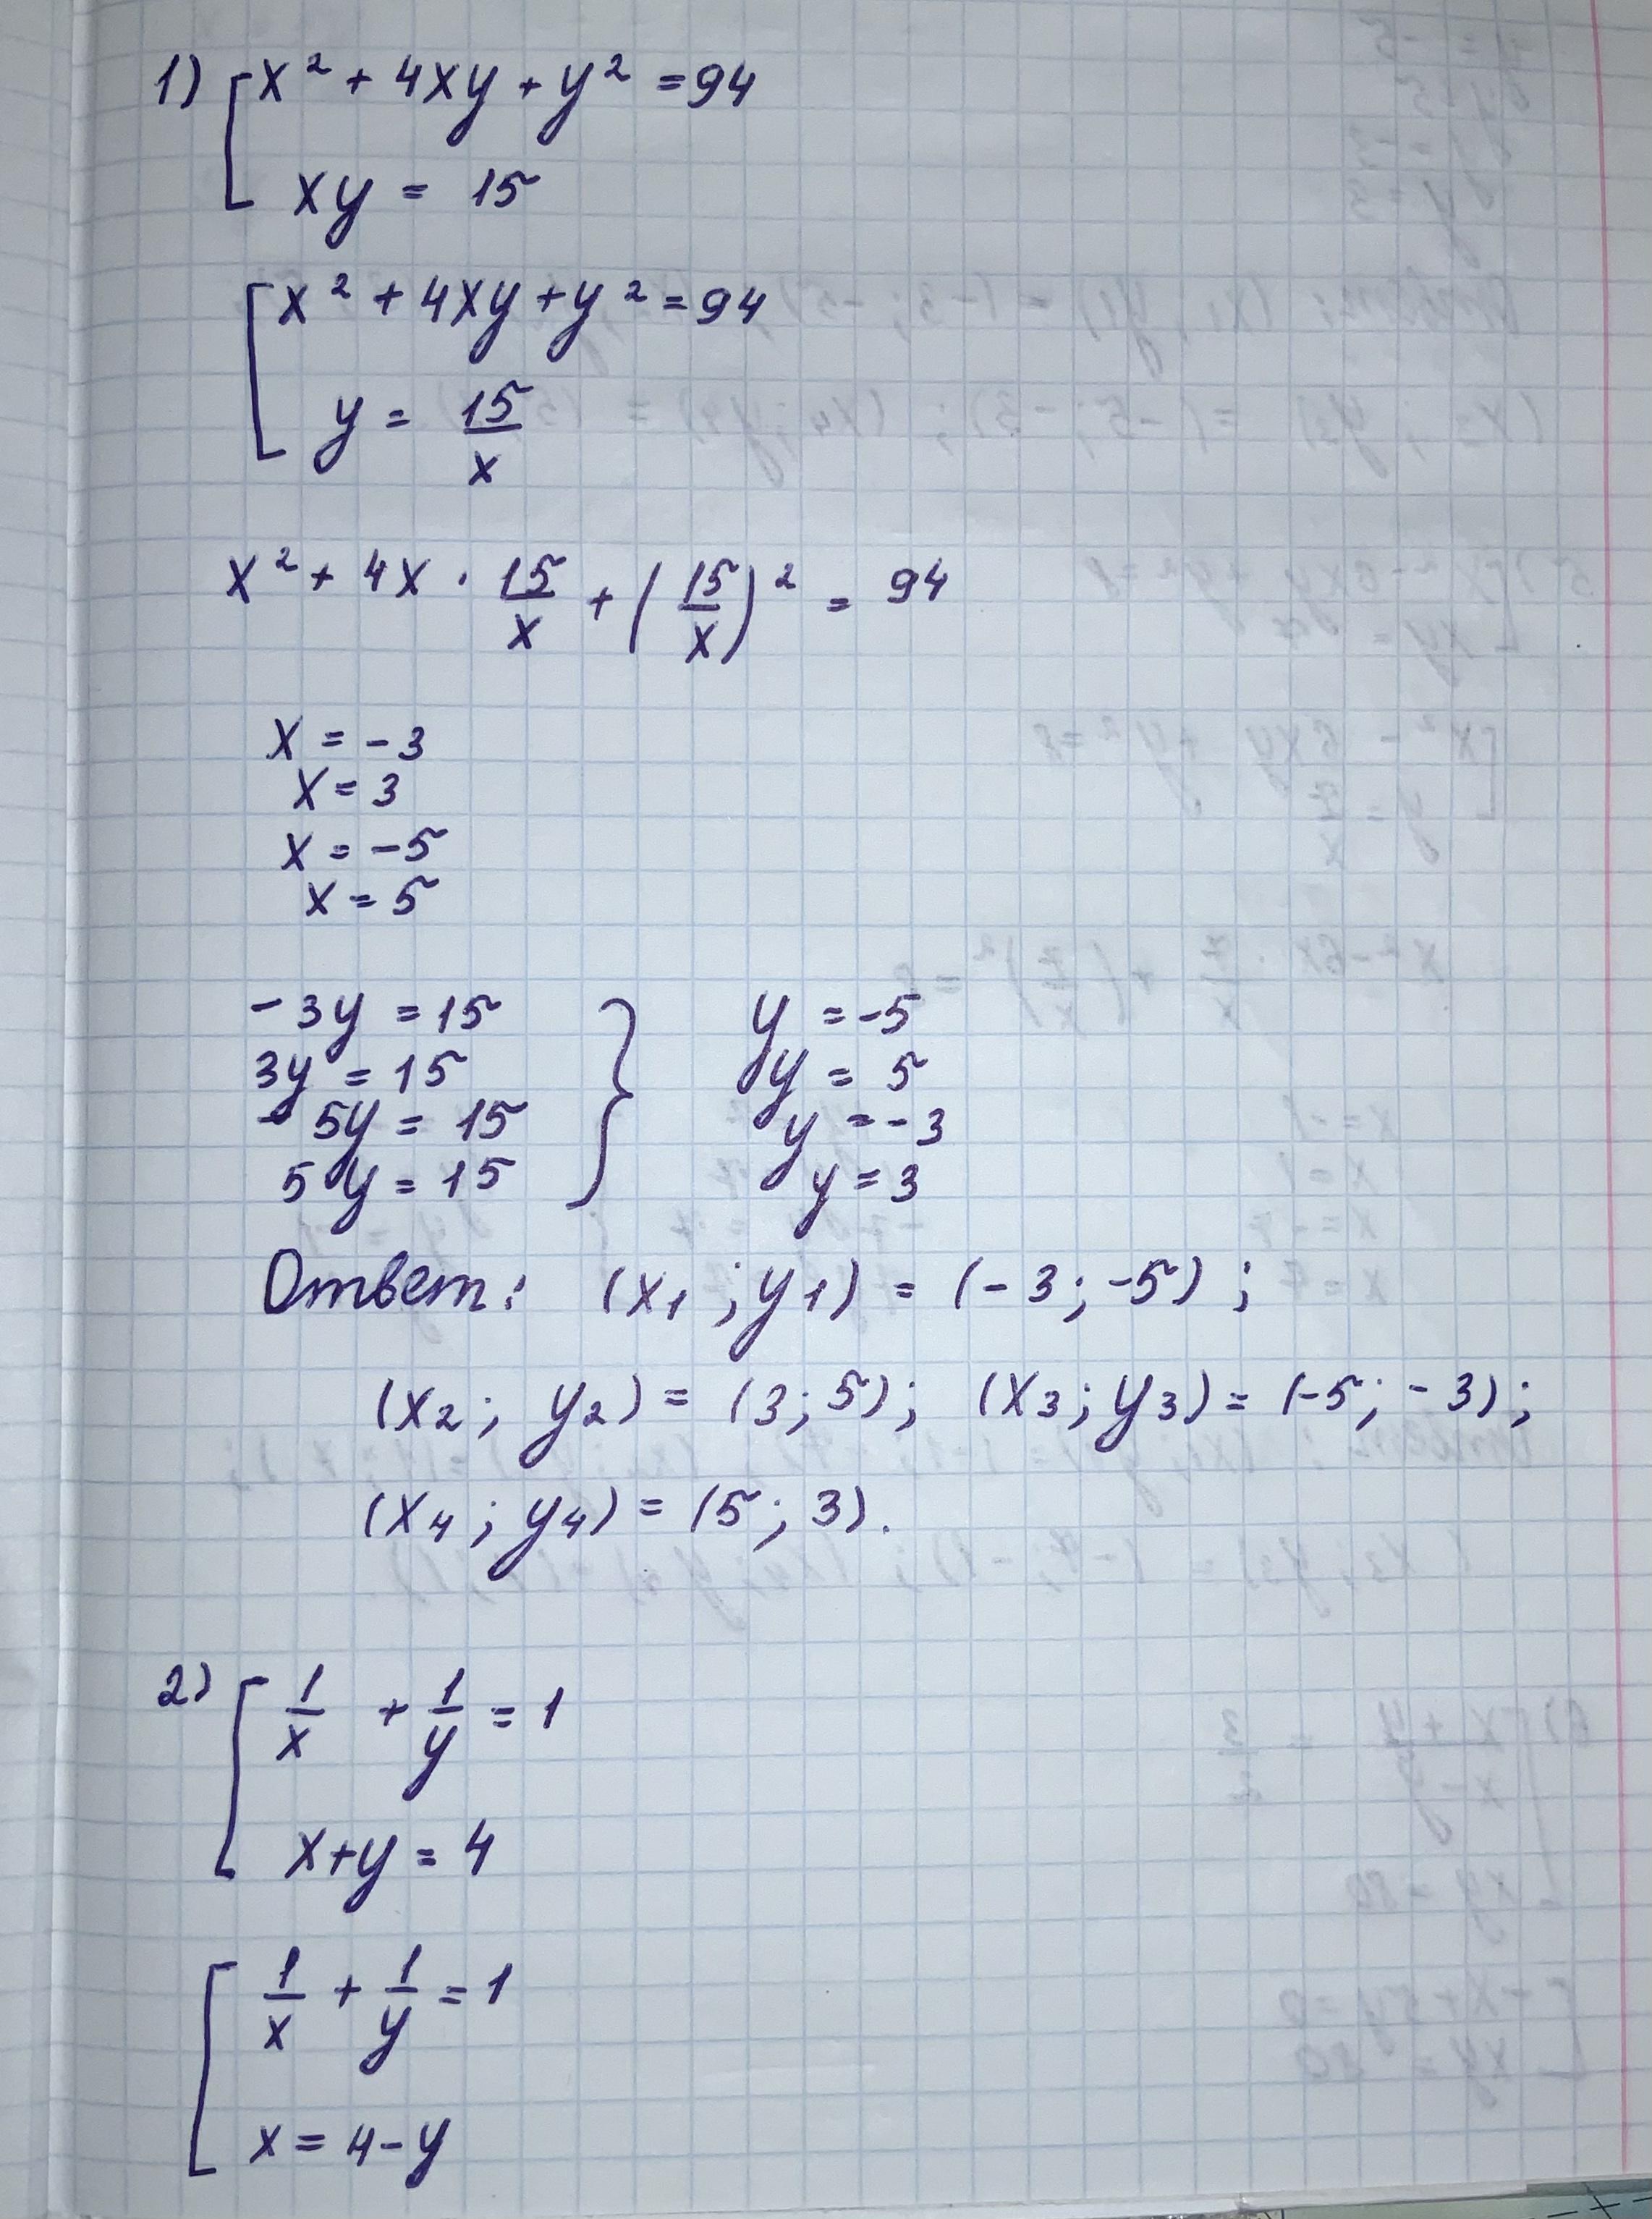 1) [x² + 4xy + y² = 94
xy = 15
[x² + 4xy + y² = 94
y = 15/x
x² + 4x · 15/x + (15/x)² = 94
x = -3
x = 3
x = -5
x = 5
-3y = 15 } y = -5
3y = 15 y = 5
-5y = 15 y = -3
5y = 15 y = 3
Ответ: (x₁ ; y₁) = (-3 ; -5) ;
(x₂ ; y₂) = (3 ; 5) ; (x₃ ; y₃) = (-5 ; -3) ;
(x₄ ; y₄) = (5 ; 3).
2) [1/x + 1/y = 1
x+y = 4
[1/x + 1/y = 1
x = 4-y